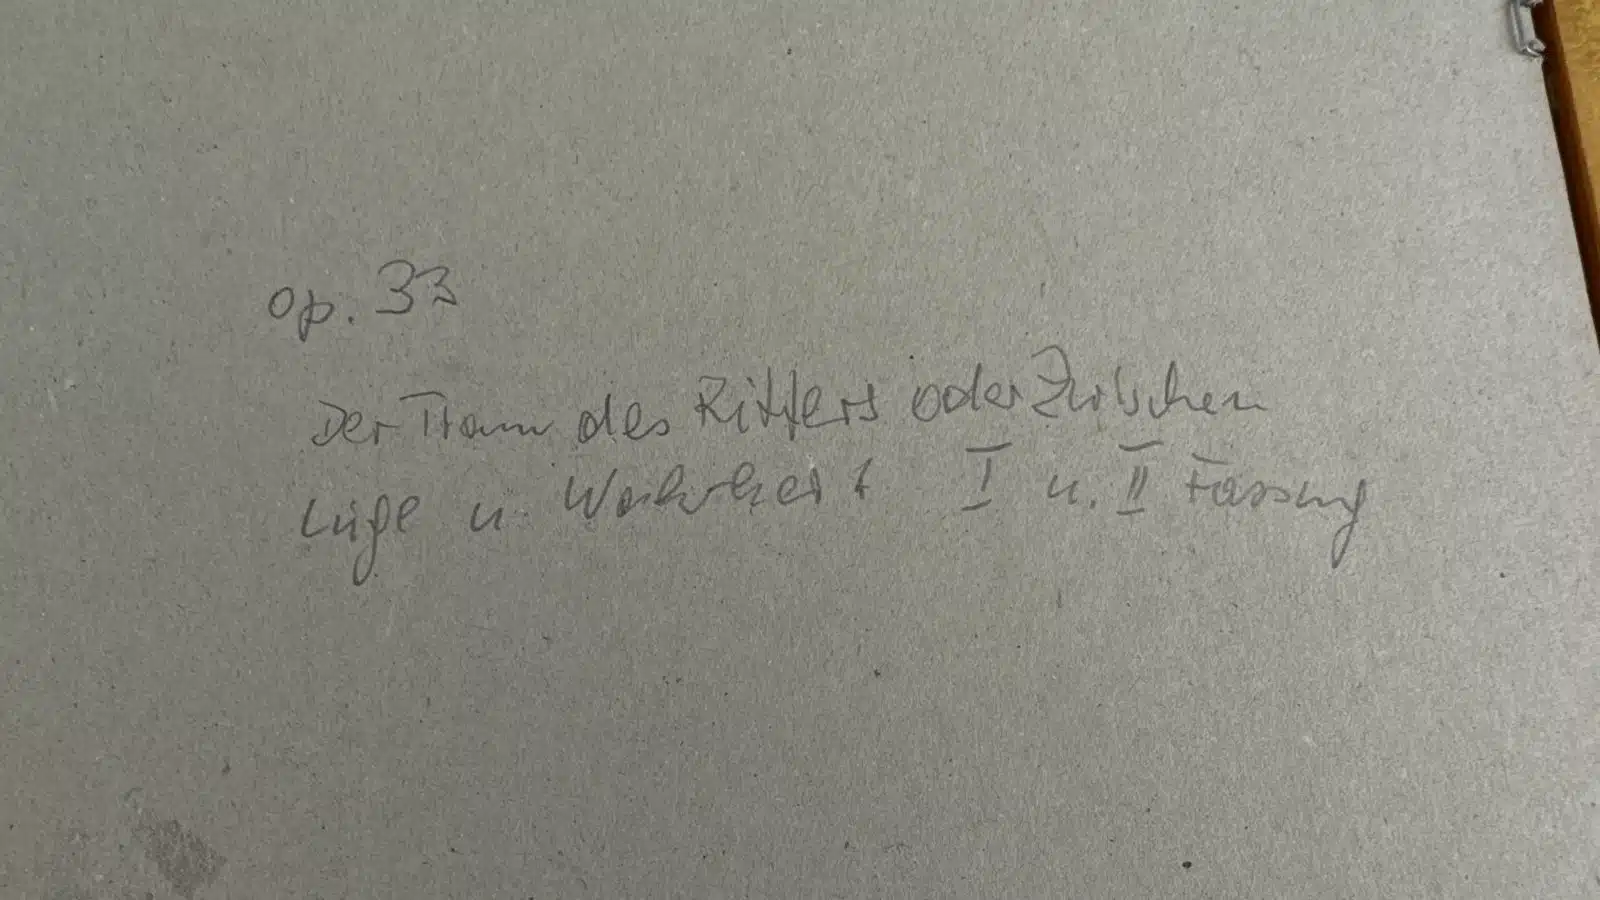 op. 33
Der Traum des Ritters oder Zwischen
Lüge u. Wahrheit I u. II Fassung